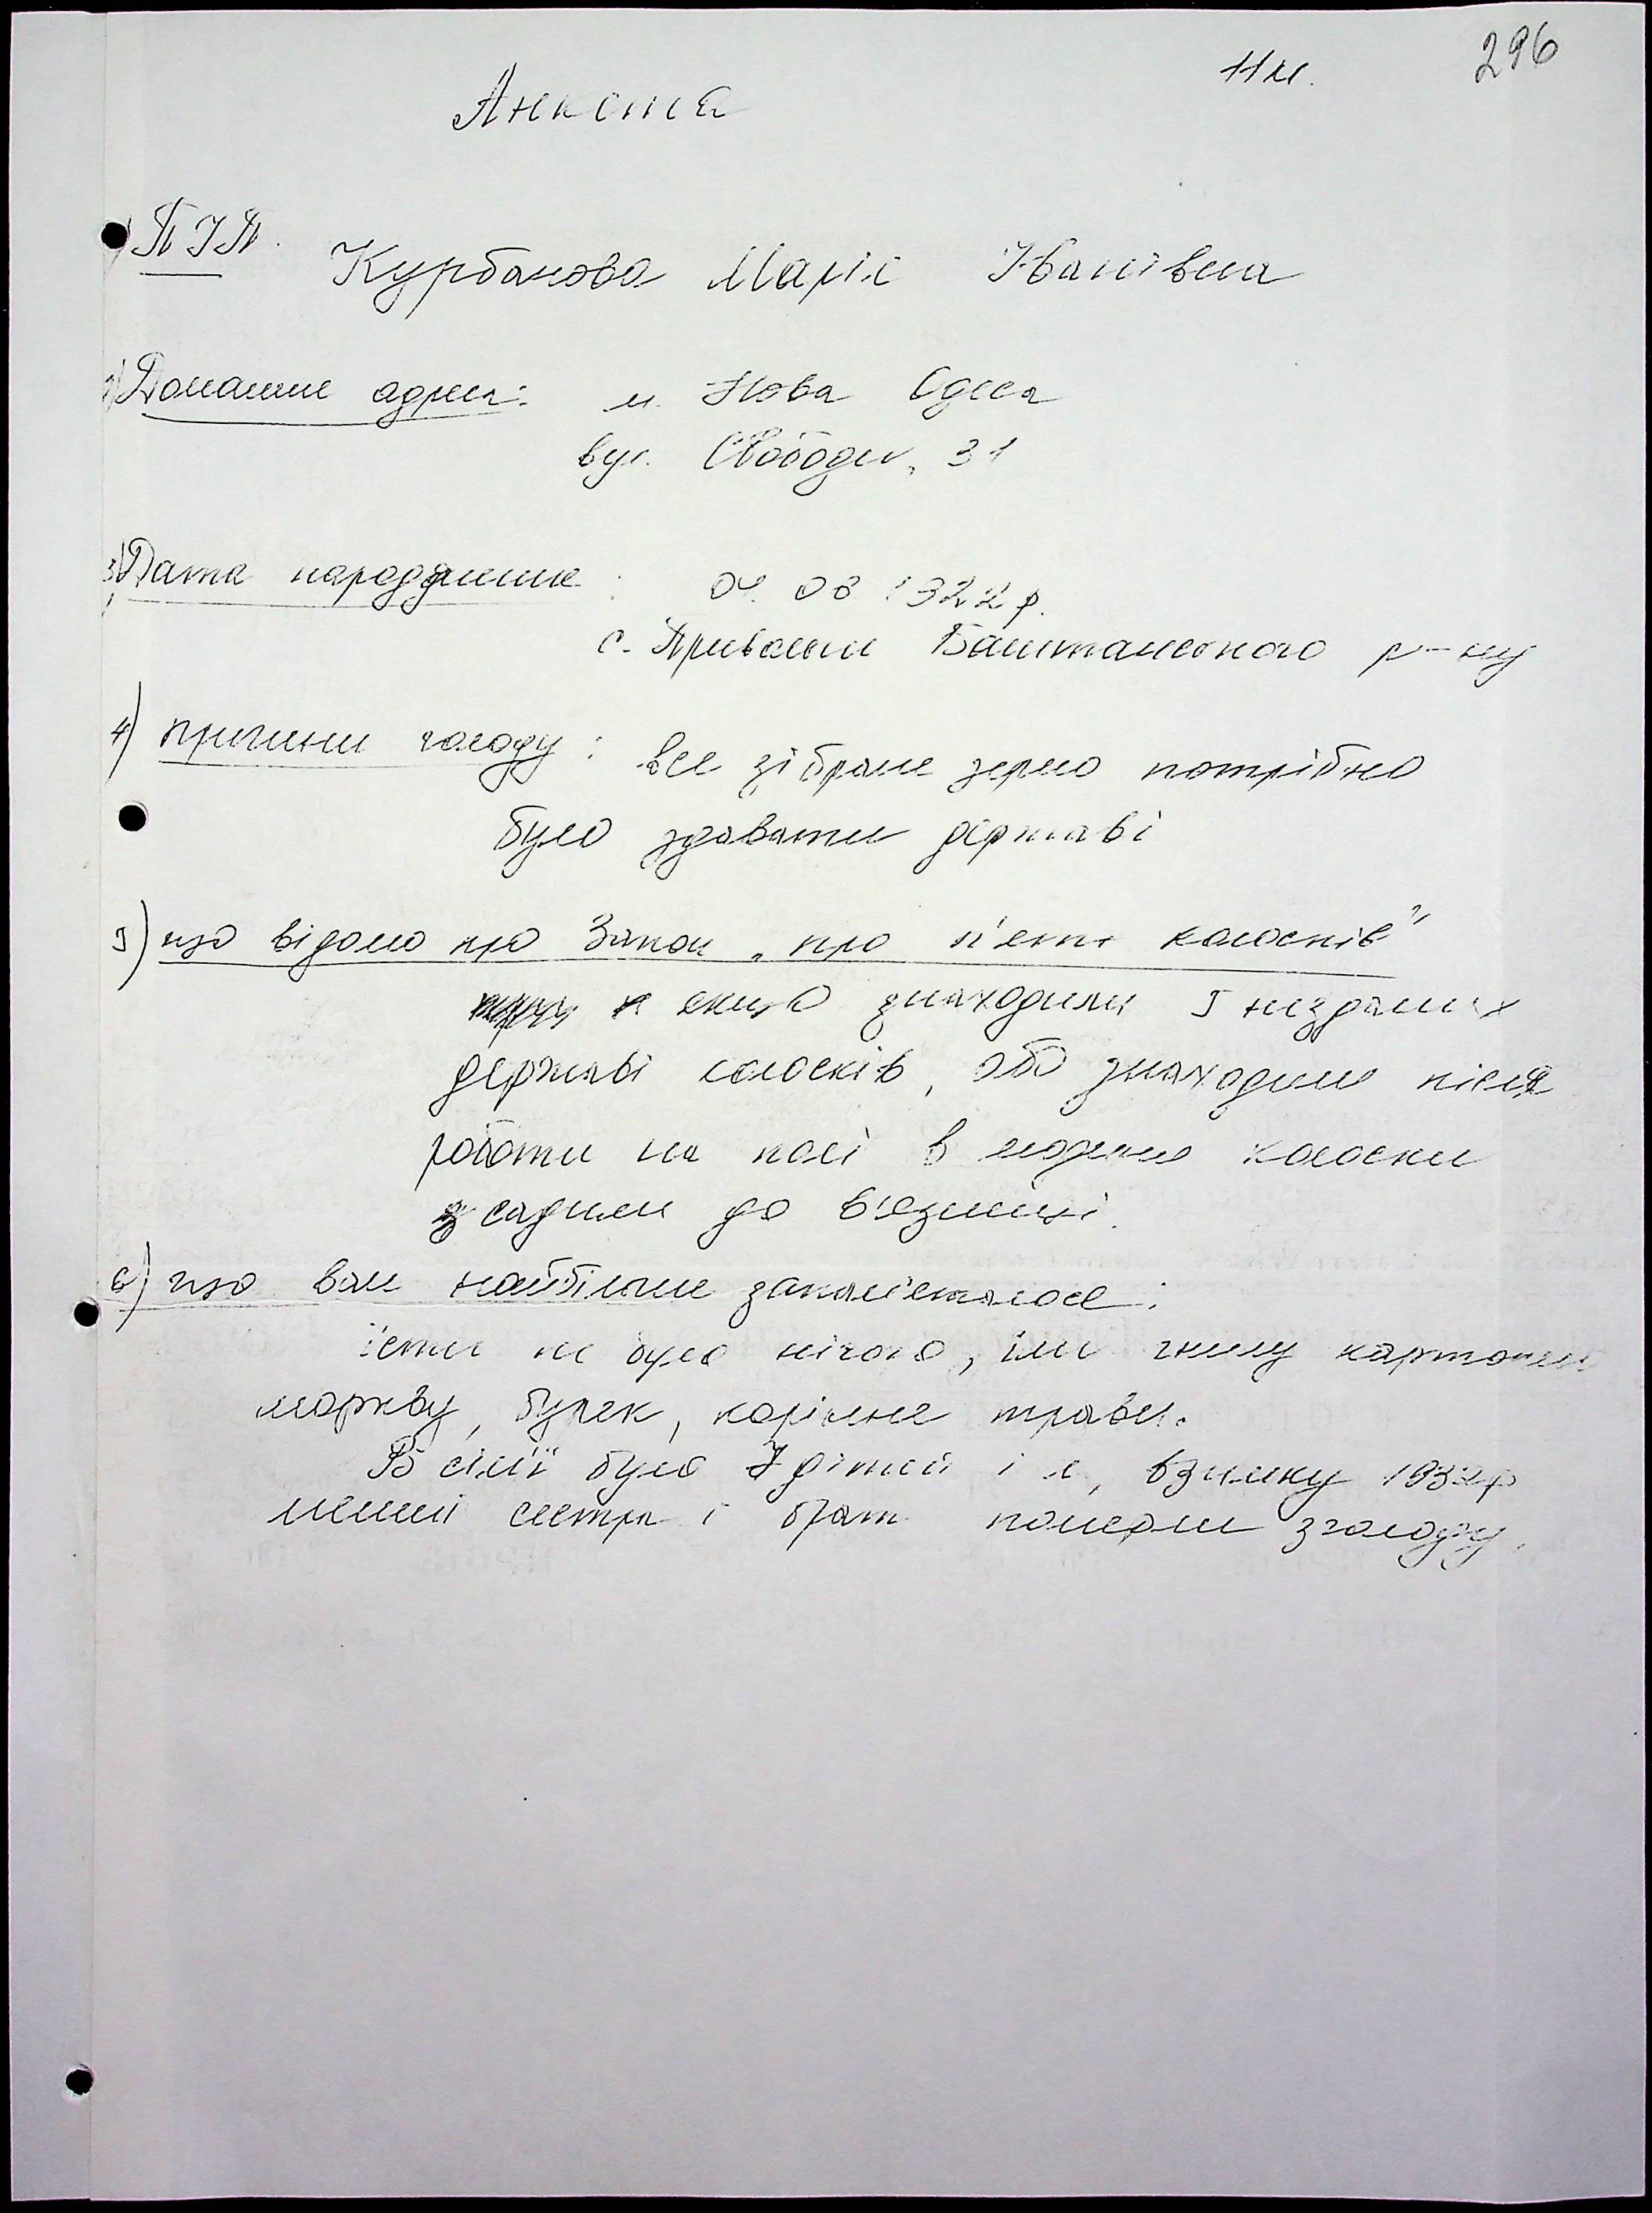 11м. 296
Анкета
1) ПІП. Курбанова Марія Іванівна
2) Домашня адреса: м. Нова Одеса
вул. Свободи, 31
3) Дата народження: 04. 08 1922 р.
с. Привольн Баштанського р-ну
4) причини голоду: все зібране зерно потрібно
було здавати державі
5) що відомо про Закон „про п'ять колосків"
якщо знаходили 5 нездани х
державі колосків, або знаходили після
роботи на полі в людини колоски
садили до в'язниці.
6) що вам найбільше запам'яталося:
їсти не було нічого, їли гнилу картоплю
моркву, буряк, коріння трави.
В сім'ї було 7 дітей і я, взимку 1932р
менші сестра і брат померли з голоду.